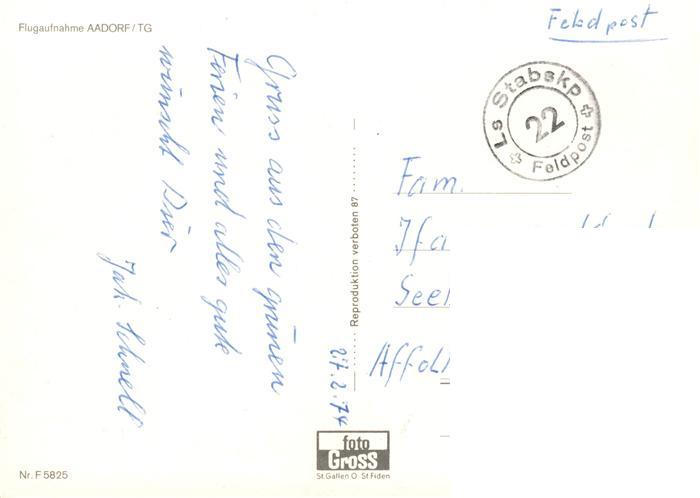 Flugaufnahme AADORF/TG
Gruss aus den grünen
Ferien und alles gute
wünscht Dier
Jak. Schnell
27.2.74
Nr. F 5825
Reproduktion verboten 87
foto
Gross
St.Gallen O St.Fiden
Feldpost
Ls Stabskp
22
Feldpost
Fam.